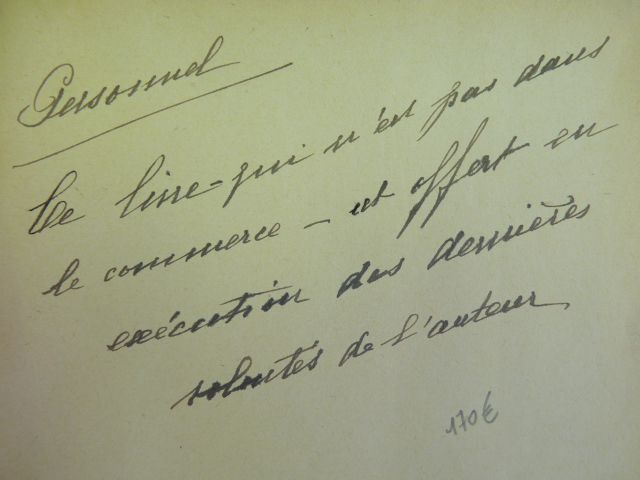 Personnel
Ce livre - qui n'est pas dans
le commerce - est offert en
exécution des dernières
volontés de l'auteur
170€